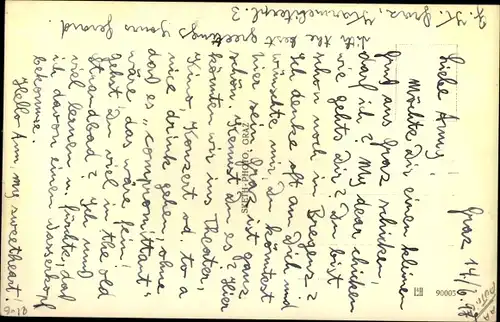 Graz 14/6 
Liebe Army!
Möchte Dir einen kleinen
Gruß aus Graz schicken,
darf ich? My dear chicken
wie gehts Dir? Du bist
schon noch in Bregenz?
Ich denke oft an Dich und
wünschte mir, Du könntest
hier sein. Graz ist ganz
schön. Kennst Du es? Hier
könnten wir ins Theater,
Kino Konzert od. to a
nice drink gehen, ohne
daß es „compromittant"
wäre, das wäre fein!
Gehst Du viel in the old
Strandbad? Ich muß
viel lernen u. fürchte, daß
ich davon einen Wasserkopf
bekomme.
Hello Ann, my sweetheart!
with the best greetings yours Gerard.
Graz, Karmeliterpl. 3
STEFFEN-PHOTO, GRAZ
90005